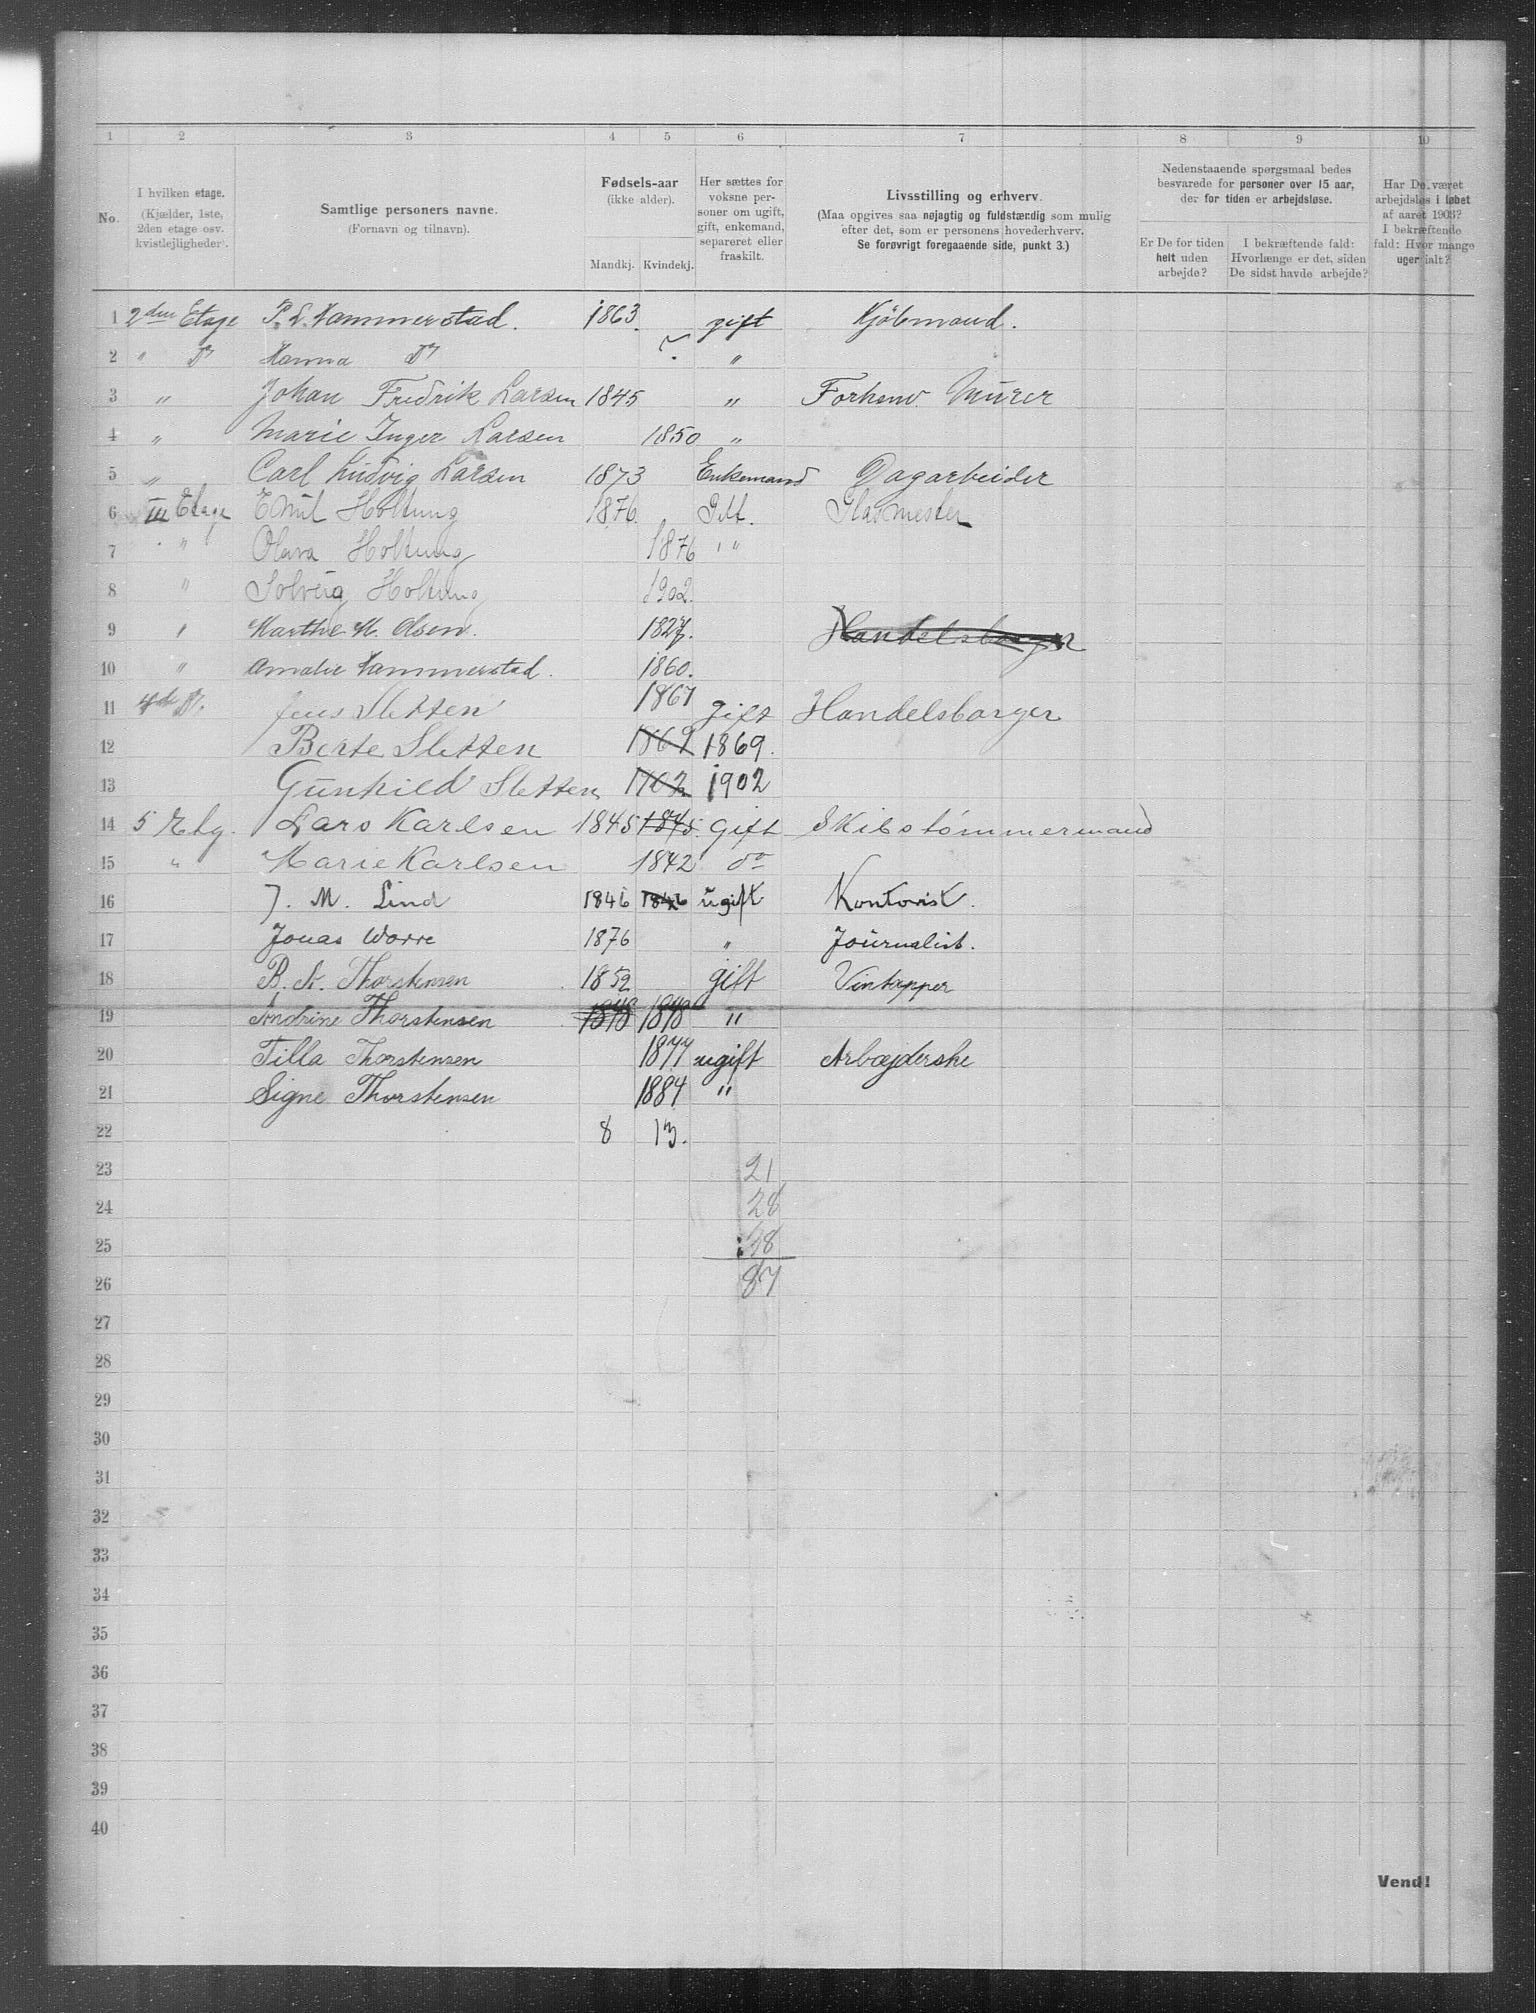 1 2 3 4 5 6 7 8 9 10
No.
I hvilken etage. (Kjælder, 1ste, 2den etage osv. kvistlejligheder).
Samtlige personers navne. (Fornavn og tilnavn).
Fødsels-aar (ikke alder).
Mandkj. Kvindekj.
Her sættes for voksne personer om ugift, gift, enkemand, separeret eller fraskilt.
Livsstilling og erhverv.
(Maa opgives saa nøjagtig og fuldstændig som mulig efter det, som er personens hovederhverv.
Se forøvrigt foregaaende side, punkt 3.)
Nedenstaaende spørgsmaal bedes besvarede for personer over 15 aar, der for tiden er arbejdsløse.
Er De for tiden helt uden arbejde?
I bekræftende fald: Hvorlænge er det, siden De sidst havde arbejde?
Har De været arbejdsløs i løbet af aaret 1903? I bekræftende fald: Hvor mange uger ialt?
1 2den Etage P. L. Hammerstad. 1863. gift Kjöbmand.
2 " Do Hanna Do ? "
3 " Johan Fredrik Larsen 1845 " Forhenv. Murer
4 " Marie Inger Larsen 1850 "
5 " Carl Ludvig Larsen 1873 Enkemand Dagarbeider
6 III Etage Emil Holtung 1876 Gift. Glasmester
7 " Olava Holtung 1876 "
8 " Solveig Holtung 1902.
9 " Marthe M. Olsen. 1827. Handelsborger
10 " Amalie Hammerstad. 1860.
11 4de Do. Jens Sletten 1867 gift Handelsborger
12 Berte Sletten 1869 1869.
13 Gunhild Sletten 1902 1902
14 5 Etg. Lars Karlsen 1845 1845. gift Skibstömmermand
15 " Marie Karlsen 1842 do
16 J. M. Lind 1846 1846 ugift Kontorist.
17 Jonas Worre 1876 " Journalist.
18 B. A. Thorstensen 1852 gift Vintapper
19 Andrine Thorstensen 1848 "
20 Tilla Thorstensen 1877 ugift Arbejderske
21 Signe Thorstensen 1884 "
22 8 13.
23 21
24 28
25 38
26 87
27
28
29
30
31
32
33
34
35
36
37
38
39
40
Vend!